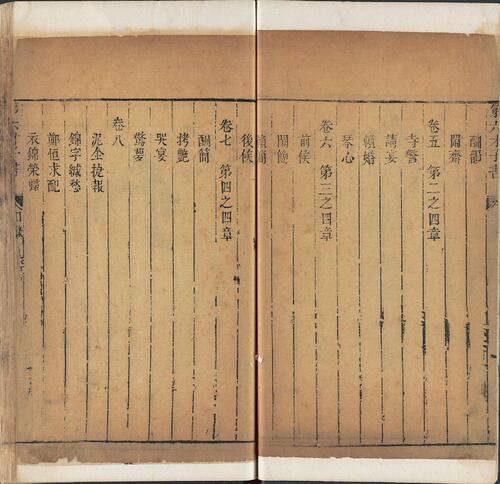 酬韻
鬧齋
卷五 第二之四章
寺警
請宴
賴婚
琴心
卷六 第三之四章
前候
鬧簡
賴簡
後候
卷七 第四之四章
酬簡
拷艷
哭宴
驚夢
卷八
泥金捷報
錦字緘愁
鄭恒求配
衣錦榮歸